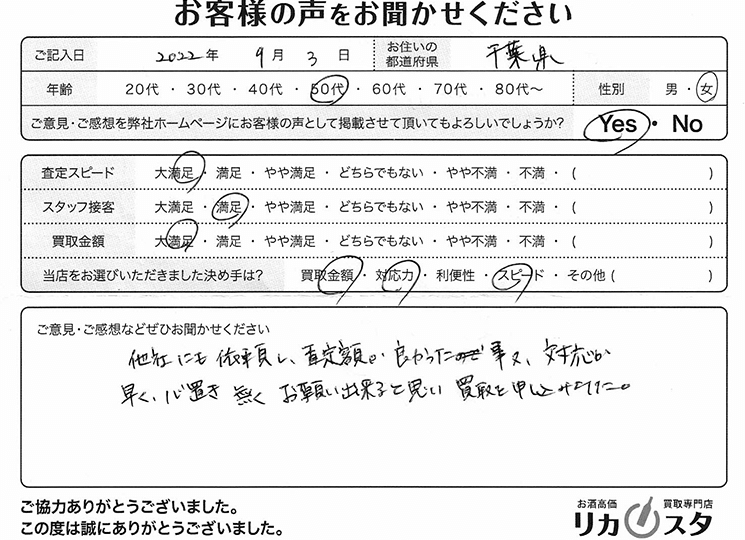 お客様の声をお聞かせください
ご記入日 2022年 9月 3日 お住いの都道府県 千葉県
年齢 20代 ・ 30代 ・ 40代 ・ 50代 ・ 60代 ・ 70代 ・ 80代〜 性別 男 ・ 女
ご意見・ご感想を弊社ホームページにお客様の声として掲載させて頂いてもよろしいでしょうか? Yes ・ No
査定スピード 大満足 ・ 満足 ・ やや満足 ・ どちらでもない ・ やや不満 ・ 不満 ・ ( )
スタッフ接客 大満足 ・ 満足 ・ やや満足 ・ どちらでもない ・ やや不満 ・ 不満 ・ ( )
買取金額 大満足 ・ 満足 ・ やや満足 ・ どちらでもない ・ やや不満 ・ 不満 ・ ( )
当店をお選びいただきました決め手は? 買取金額 ・ 対応力 ・ 利便性 ・ スピード ・ その他 ( )
ご意見・ご感想などぜひお聞かせください
他社にも依頼し、査定額が良かった事又、対応が
早く、心置き無くお願い出来ると思い買取を申込みました。
ご協力ありがとうございました。
この度は誠にありがとうございました。
お酒高価 買取専門店
リカスタ